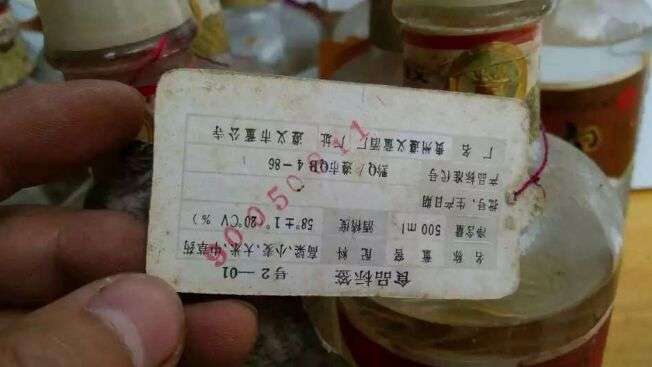 食品标签 号2—01
名称 董窖 配料 高粱、小麦、大米、中草药
净含量 500 ml 酒精度 58°±1°20℃V %)
批号、生产日期
产品标准代号 黔Q/遵市QB 4—86
厂名 贵州遵义董酒厂 厂址 遵义市董公寺